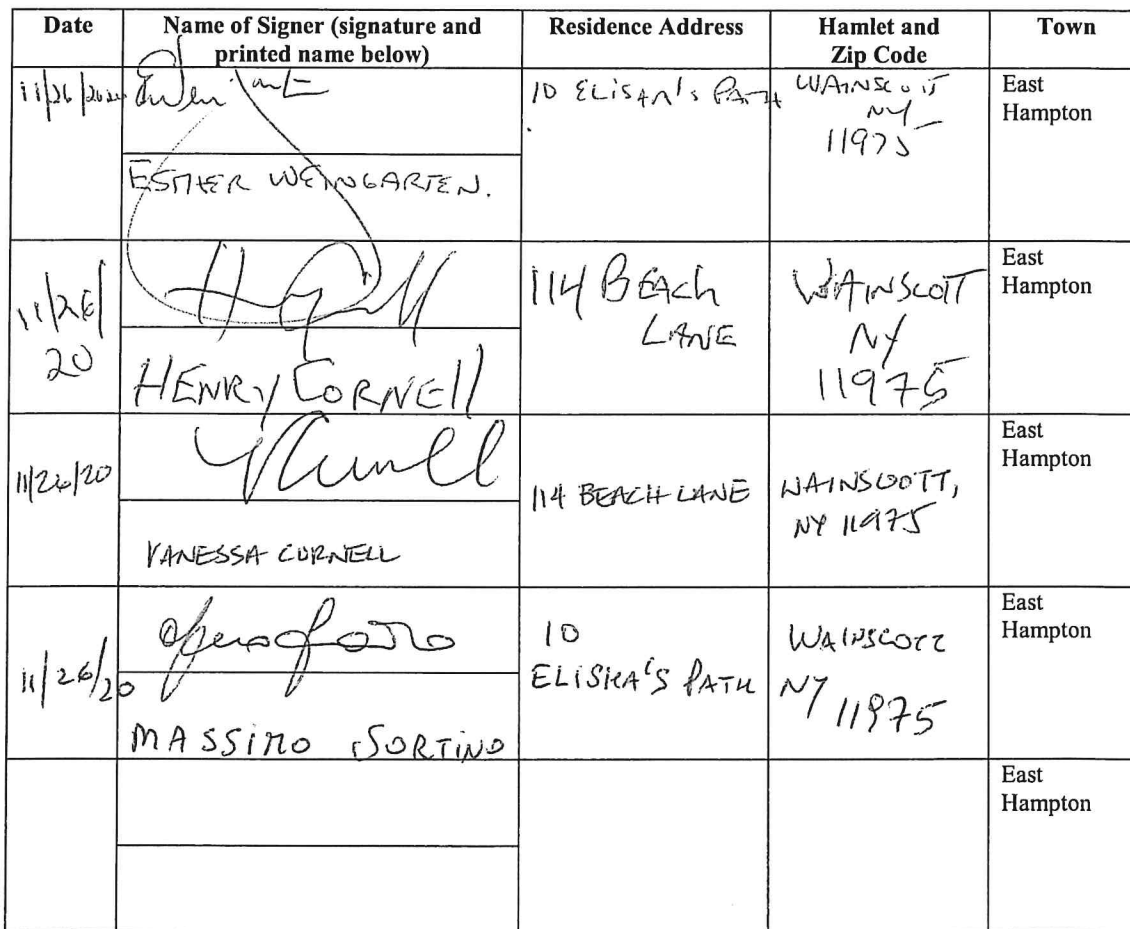 Date
Name of Signer (signature and
printed name below)
Residence Address
Hamlet and
Zip Code
Town
11/26/2020
10 ELISHA'S PATH
WAINSCOTT
NY
11975
East
Hampton
ESTHER WEINGARTEN.
11/26/
20
HENRY CORNELL
114 BEACH
LANE
WAINSCOTT
NY
11975
East
Hampton
11/26/20
VANESSA CORNELL
114 BEACH LANE
WAINSCOTT,
NY 11975
East
Hampton
11/26/20
MASSIMO SORTINO
10
ELISHA'S PATH
WAINSCOTT
NY
11975
East
Hampton
East
Hampton